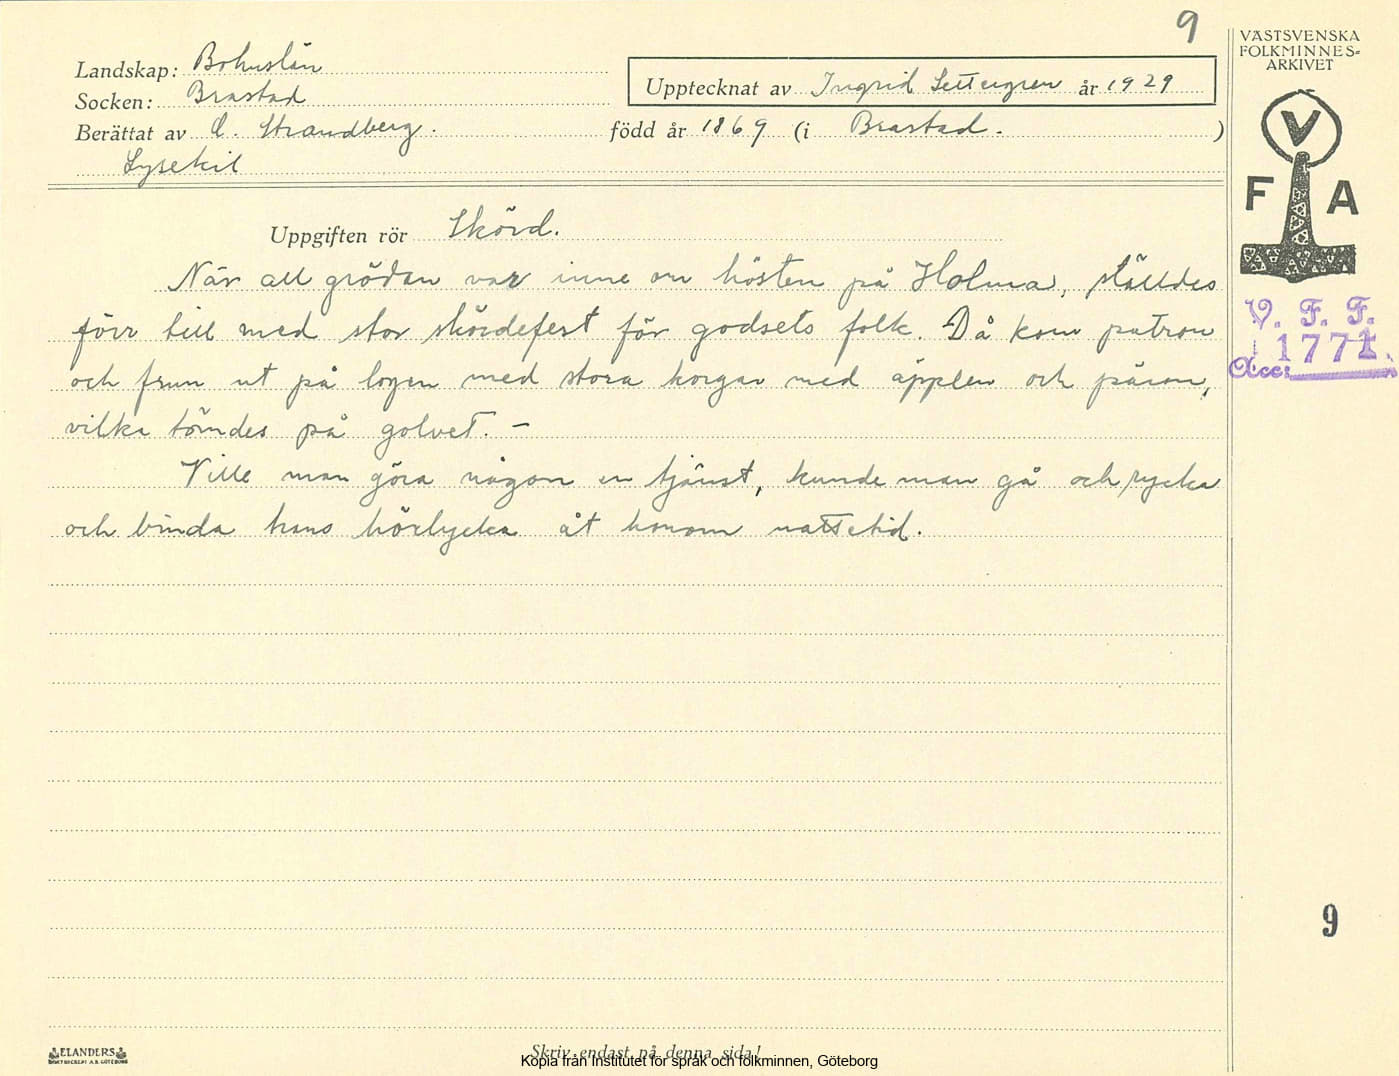 9
VÄSTSVENSKA
FOLKMINNES=
ARKIVET
Landskap: Bohuslän
Socken: Brastad
Upptecknat av Ingrid Settergren år 1929
Berättat av C. Strandberg. född år 1869 (i Brastad. )
Lysekil
V
F A
Uppgiften rör Skörd.
När all grödan var inne om hösten på Holma, ställdes
förr till med stor skördefest för godsets folk. Då kom patron
och frun ut på logen med stora korgar med äpplen och päron,
vilka tömdes på golvet. –
Ville man göra någon en tjänst, kunde man gå och rycka
och binda hans hörlycka åt honom nattetid.
V. F. F.
1771.
Acc:
9
ELANDERS
BOKTRYCKERI A.B. GÖTEBORG
Skriv endast på denna sida!
Kopia från Institutet för språk och folkminnen, Göteborg